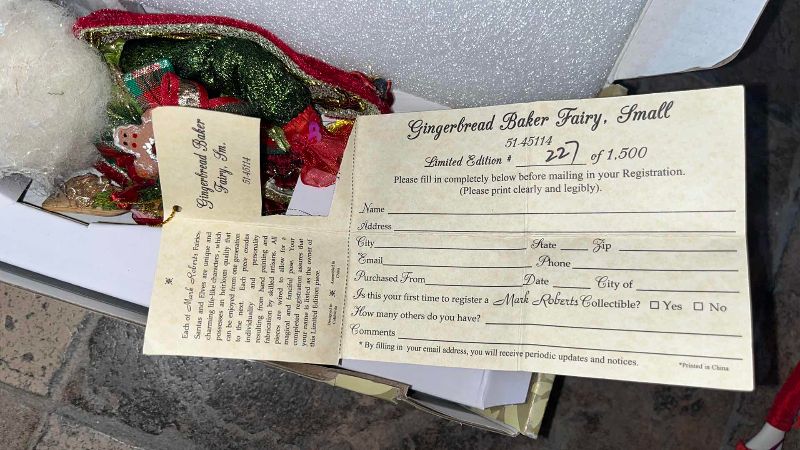 Gingerbread Baker
Fairy, Sm.
51-45114
Each of Mark Roberts Fairies,
Santas and Elves are unique and
charming life-like characters, which
possesses an heirloom quality that
can be enjoyed from one generation
to the next. Each piece exudes
individuality and personality
resulting from hand painting and
fabrication by skilled artisans. All
pieces are wired to allow for a
magical and fanciful pose. Your
completed registration assures that
your name is listed as the owner of
this Limited Edition piece.
Gingerbread Baker Fairy, Small
51-45114
Limited Edition # 227 of 1,500
Please fill in completely below before mailing in your Registration.
(Please print clearly and legibly).
Name
Address
City State Zip
Email Phone
Purchased From Date City of
Is this your first time to register a Mark Roberts Collectible? Yes No
How many others do you have?
Comments
* By filling in your email address, you will receive periodic updates and notices.
*Printed in China